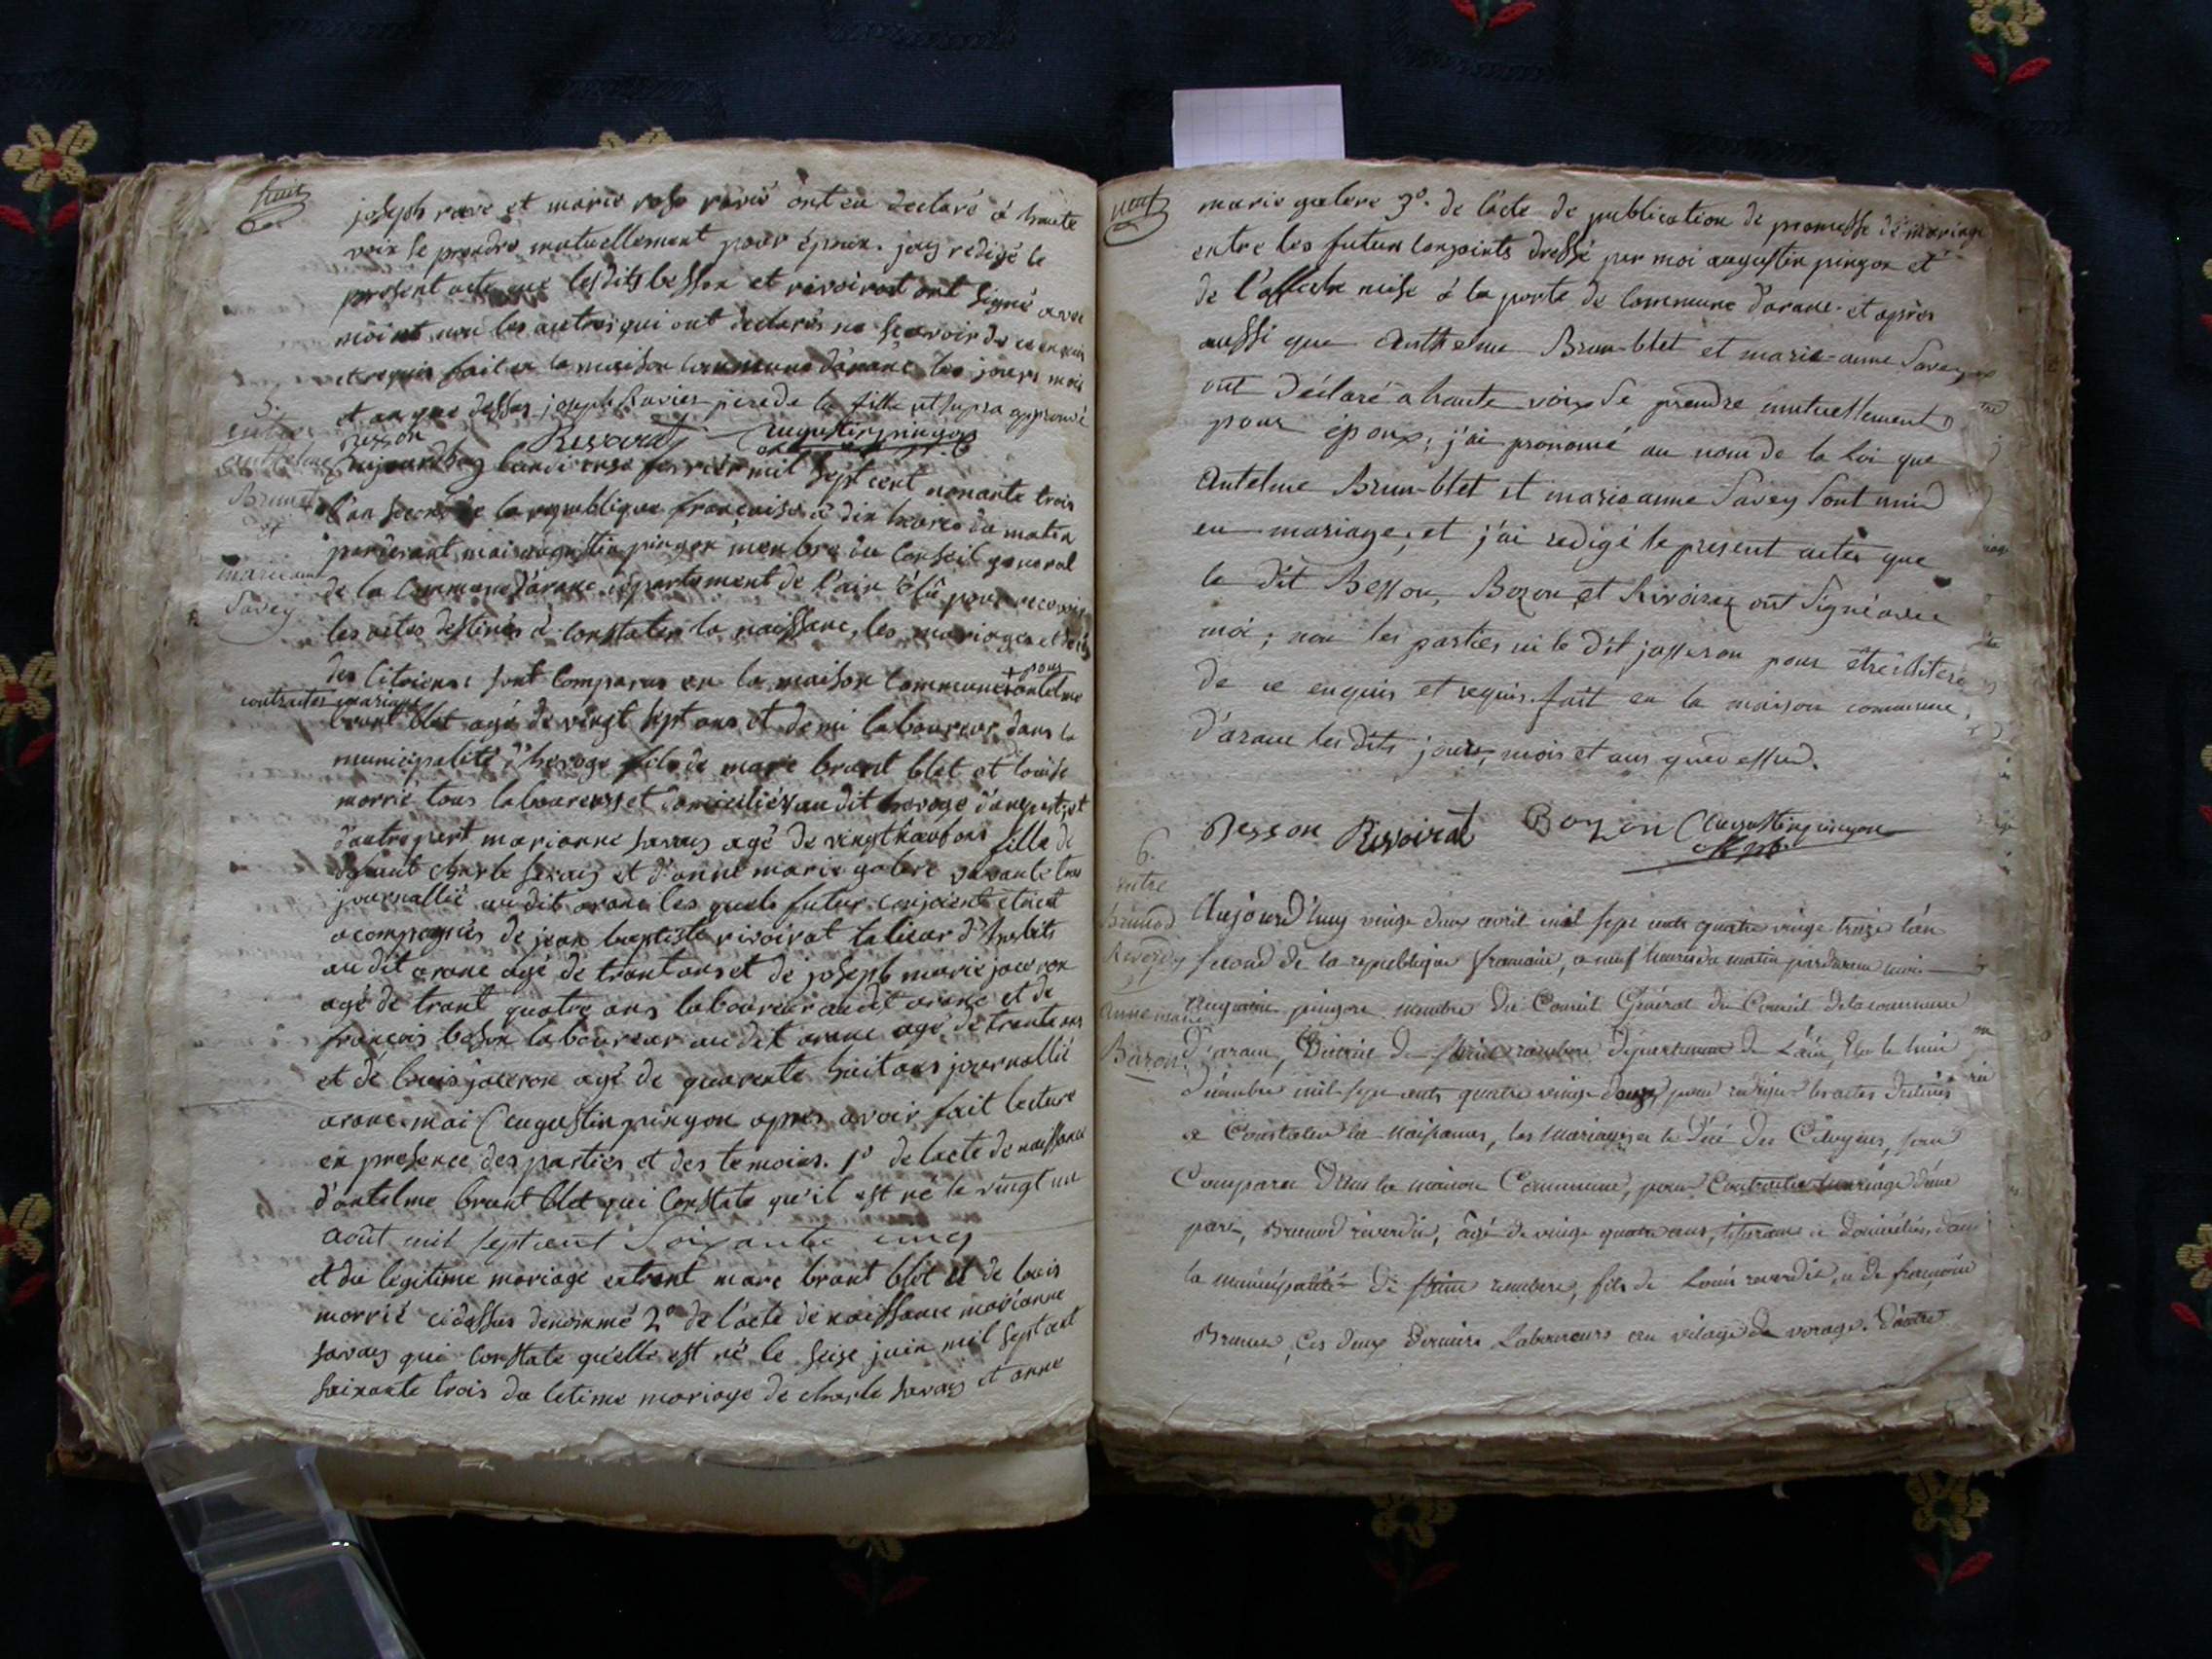 huit
joseph rave et marie rose ravié ont eu declaré à haute
voix se prendre mutuellement pour époux. jay redigé le
present acte que lesdits besson et rivoirat ont signé avec
moi et non les autres qui ont declarés ne scavoir de ce enquis
et requis fait en la maison commune d'arane les jours mois
et an que dessus joseph Ravier pere de la fille approuvé
besson Resvoirat augustin pingon
5.
entre
anthelme
Brunet
et
marie anne
Savey
aujourdhuy lundi onse fevrier mil sept cent nonante trois
l'an second de la republique françaisse à dix heures du matin
pardevant moi augustin pingon membre du Conseil general
de la Commune d'arane departement de l'ain élû pour recevoir
les actes destinés à constater la naissance, les mariages et
des Citoiens: sont comparus en la maison commune + antelme
+ pour
contracter mariage
brunt blet agé de vingt sept ans et demi laboureur dans la
municipalité d'hevoge fils de marc brunt blet et louise
morrié tous laboureurs et domiciliés au dit hevoge d'une part, et
d'autre part marianne savay agé de vingt neuf ans fille de
defunt charle savay et d'anne marie galere vivante tous
journallié au dit arane les quels futur conjoient étoient
acompagniés de jean baptiste rivoirat talieur d'habits
au dit arane agé de trant ans et de joseph marie joceron
agé de trant quatre ans laboureur au dit arane et de
françois boson laboureur au dit arane agé de trante ans
et de louis joceron agé de quarente huit ans journallié
arane. moi augustin pingon apres avoir fait lecture
en presence des parties et des temoins. 1º de lacte de naissance
d'antelme brunt blet qui constate qu'il est né le vingt un
août mil sept cent soixante cinq
et du legitime mariage entrent marc brunt blet et de louis
morrié cidessus denommé 2º de l'acte de naissance marianne
savay qui constate qu'elle est né le seise juin mil sept cent
soixante trois du letime mariage de charle savay et anne
neuf
marie galere 3º. de l'acte de publication de promesse de mariage
entre les futurs conjoints dressé par moi augustin pingon et
de l'affiche mise à la porte de Commune d'arane et après
aussi que Anthelme Brun-blet et marie-anne Savey
ont déclaré a haute voix se prendre mutuellement
pour époux; j'ai prononcé au nom de la loi que
Antelme Brun-blet et marie anne Savey sont unis
en mariage, et j'ai redigé le present acte, que
le dit Besson, Bozon, et Rivoirat ont signé avec
moi; non les parties ni le dit josseron pour être illiteré
de ce enquis et requis. fait en la maison commune,
d'arane les dits jour, mois et ans que dessus.
Besson Risvoirat Bozon Augustin pingon
6.
entre
brunod
Reverdy
et
anne marie
Bozon.
Aujourd'huy vingt deux avril mil sept cents quatre vingt treize l'an
second de la republique francaise, a neuf heures du matin pardevant moi
Augustin pingon membre du Conseil Général du Conseil de la commune
d'arane, District de Saint rambert département de L'ain, Elu le huit
décembre mil sept cents quatre vingt douze, pour rediger les actes destinés
a Constater les Naissances, les Mariages et le Décé des Citoyens, sont
Comparu Dans la maison Commune, pour Contracter mariage d'une
part, Brunod reverdi, âgé de vingt quatre ans, tisserant et Domicilié, dans
la municipalité de saint rambert, fils de Louis reverdi, et de françoise
Brunet, Ces deux Derniers Laboureurs au vilage de vorage. D'autre